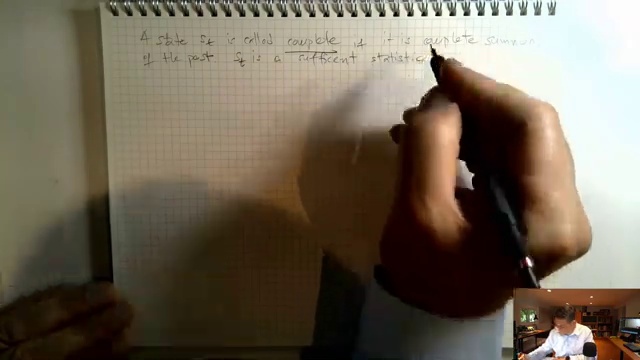 A state St is called complete if it is complete summ
of the past. St is a sufficent statistic